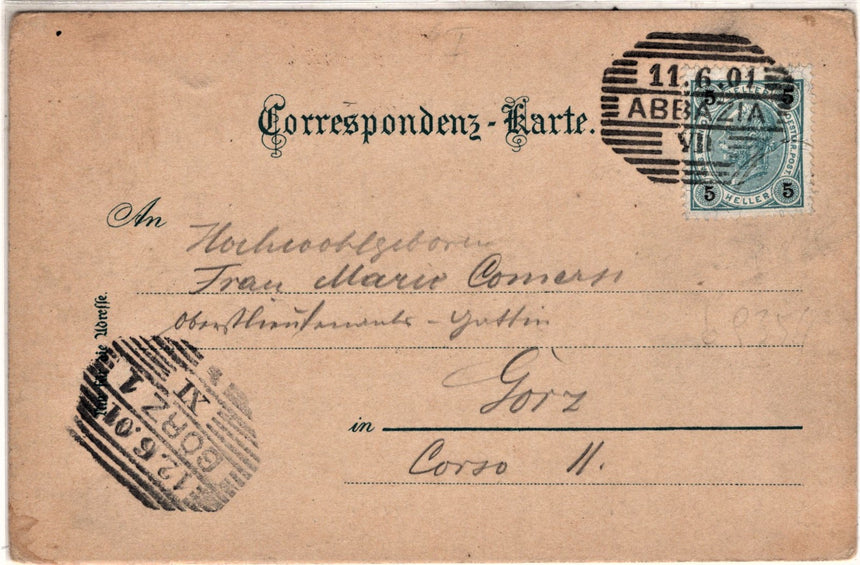 11.6.01
ABBAZIA
VII
5 5
HELLER
5 5
Correspondenz-Karte.
An
Hochwohlgeboren
Frau Marie Comersi
Oberstlieutenants-Gattin
Görz
in
Corso 11.
Nur für die Adresse.
12.6.01
GÖRZ 1
XI